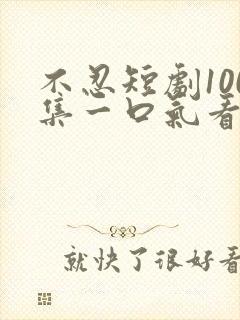 不忍短劇100
集一口氣看
就快了很好看